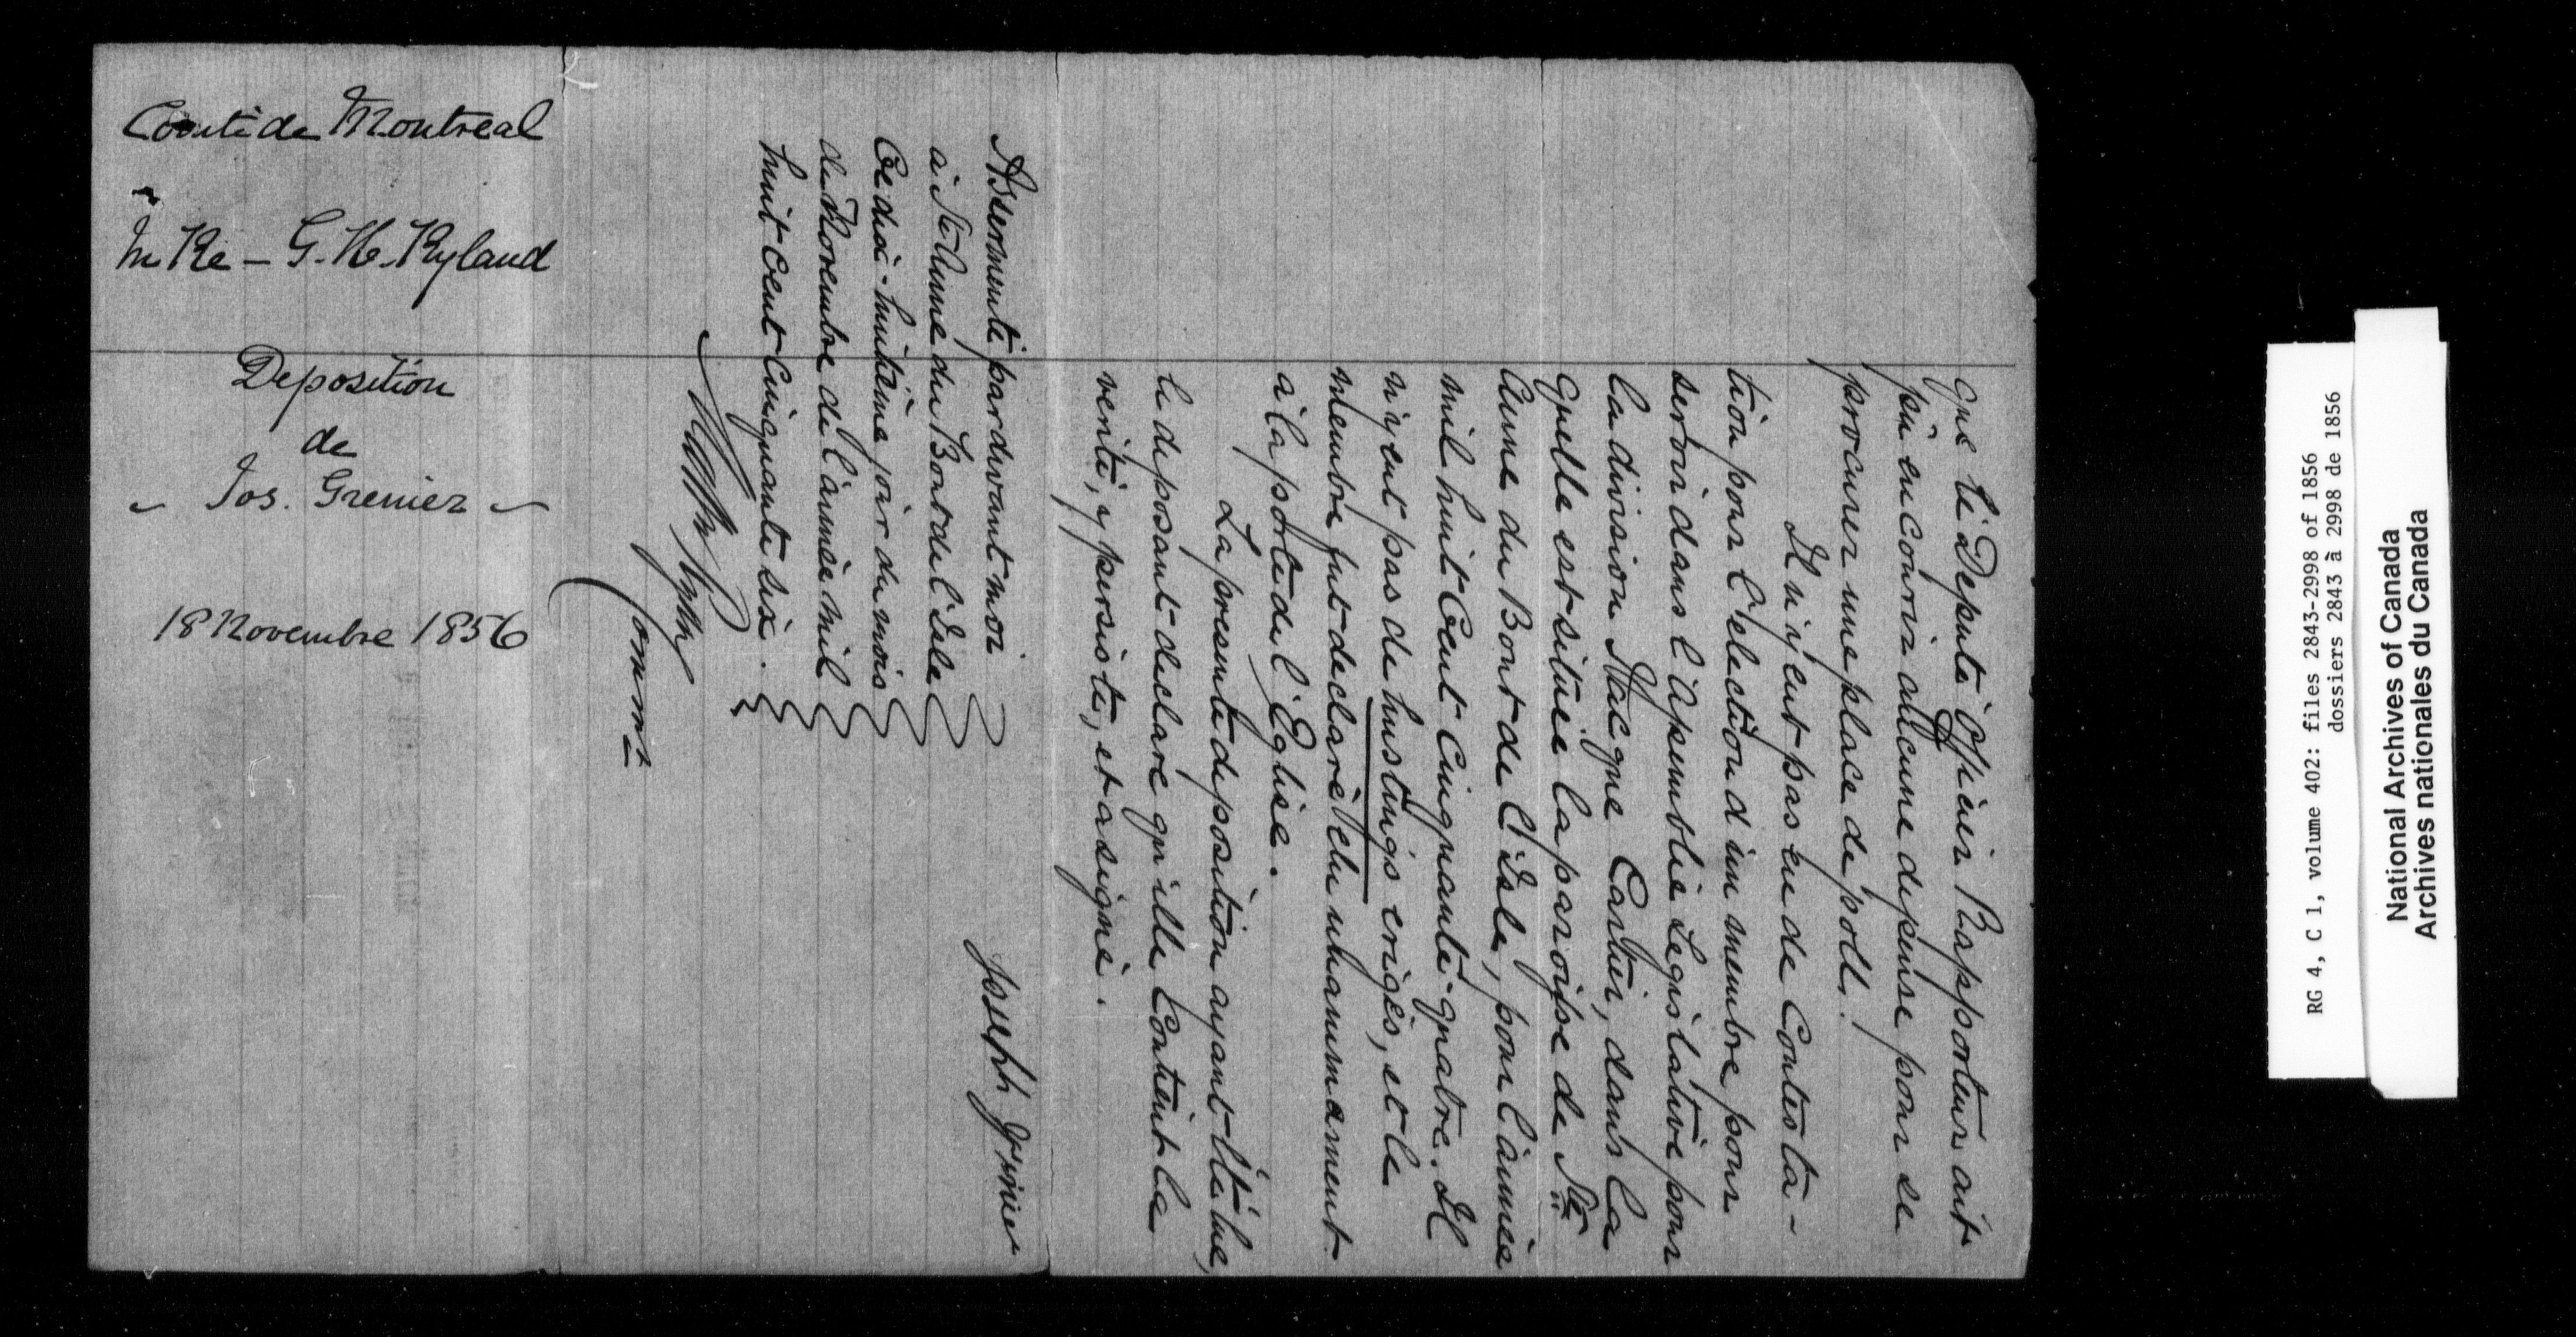 que le Deputé Officier Rapporteur ait
pû encourir aucune depense pour se
procurer une place de poll.
Il n'y eut pas eu de Contesta-
tion pour l'election d'un membre pour
servir dans l'Assemblée Legislative pour
la division Jacque Cartier, dans la
quelle est située la paroisse de Ste
Anne du Bout de l'Isle, pour l'année
mil huit Cent Cinquante-quatre. Il
n'y eut pas de hustings erigés, et le
membre fut declaré élu unanimement
à la porte de l'Eglise.
La presente deposition ayant été lue,
le deposant declare qu'elle Contient la
verité, y persiste, et a signé.
Joseph Grenier
Assermenté pardevant moi
à Ste Anne du Bout de l'Isle
Ce dix-huitième jour du mois
de Novembre de l'année mil
huit Cent Cinquante six.
Commr
Comté de Montreal
In Re - G. H. Ryland
Deposition
de
Jos. Grenier
18 Novembre 1856
RG 4, C 1, volume 402: files 2843-2998 of 1856
dossiers 2843 à 2998 de 1856
National Archives of Canada
Archives nationales du Canada